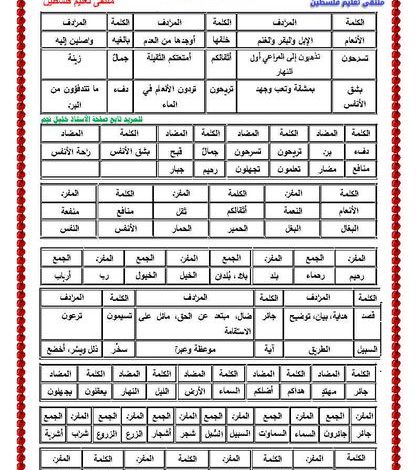 ملتقى تعليم فلسطين ملتقى تعليم فلسطين
الكلمة المرادف الكلمة المرادف الكلمة المرادف
الأنعام الإبل والبقر والغنم خلقها أوجدها من العدم بالغيه واصلين إليه
تسرحون تذهبون إلى المراعي أول النهار أثقالكم أمتعتكم الثقيلة جمال زينة
بشق الأنفس بمشقة وتعب وجهد تريحون تردون الأنعام في الماء دفء ما تتدفؤون من البرد
للمزيد تابع صفحة الأستاذ خليل نجم
الكلمة المضاد الكلمة المضاد الكلمة المضاد الكلمة المضاد
دفء برد تريحون تسرحون جمال قبح بشق الأنفس راحة الأنفس
منافع مضار تعلمون تجهلون رحيم جبار
الكلمة المفرد الكلمة المفرد الكلمة المفرد
الأنعام النعمة أثقالكم ثقل منافع منفعة
البغال البغل الحمير الحمار الأنفس النفس
المفرد الجمع المفرد الجمع المفرد الجمع المفرد الجمع
رحيم رحماء بلد بلاد، بلدان الخيل الخيول رب أرباب
الكلمة المرادف الكلمة المرادف الكلمة المرادف
قصد هداية، بيان، توضيح جائر ضال، مبتعد عن الحق، مائل على الاستقامة تسيمون ترعون
السبيل الطريق آية موعظة وعبرة سخّر ذلل ويسّر، أخضع
الكلمة المضاد الكلمة المضاد الكلمة المضاد الكلمة المضاد الكلمة المضاد
جائر مهتد هداكم أضلكم السماء الأرض الليل النهار يعقلون يجهلون
المفرد الجمع المفرد الجمع المفرد الجمع المفرد الجمع المفرد الجمع المفرد الجمع
جائر جائرون السماء السماوات السبيل السُّبل شجر أشجار الزرع الزروع شراب أشربة
الكلمة المفرد الكلمة المفرد الكلمة المفرد الكلمة المفرد